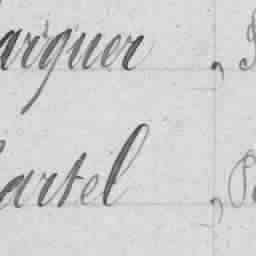 arquer,
artel,